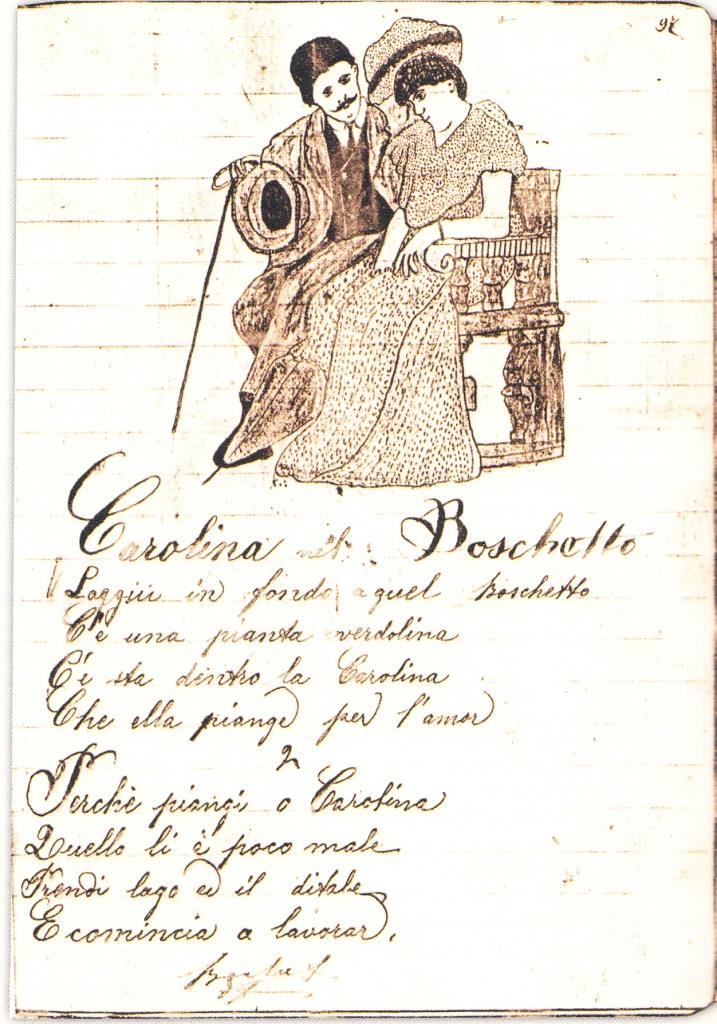 97
Carolina nel Boschetto
Laggiù in fondo a quel boschetto
C'è una pianta verdolina
C'i sta dentro la Carolina
Che ella piange per l'amor
2
Perchè piangi o Carolina
Quello li è poco male
Prendi lago ed il ditale
E comincia a lavorar.